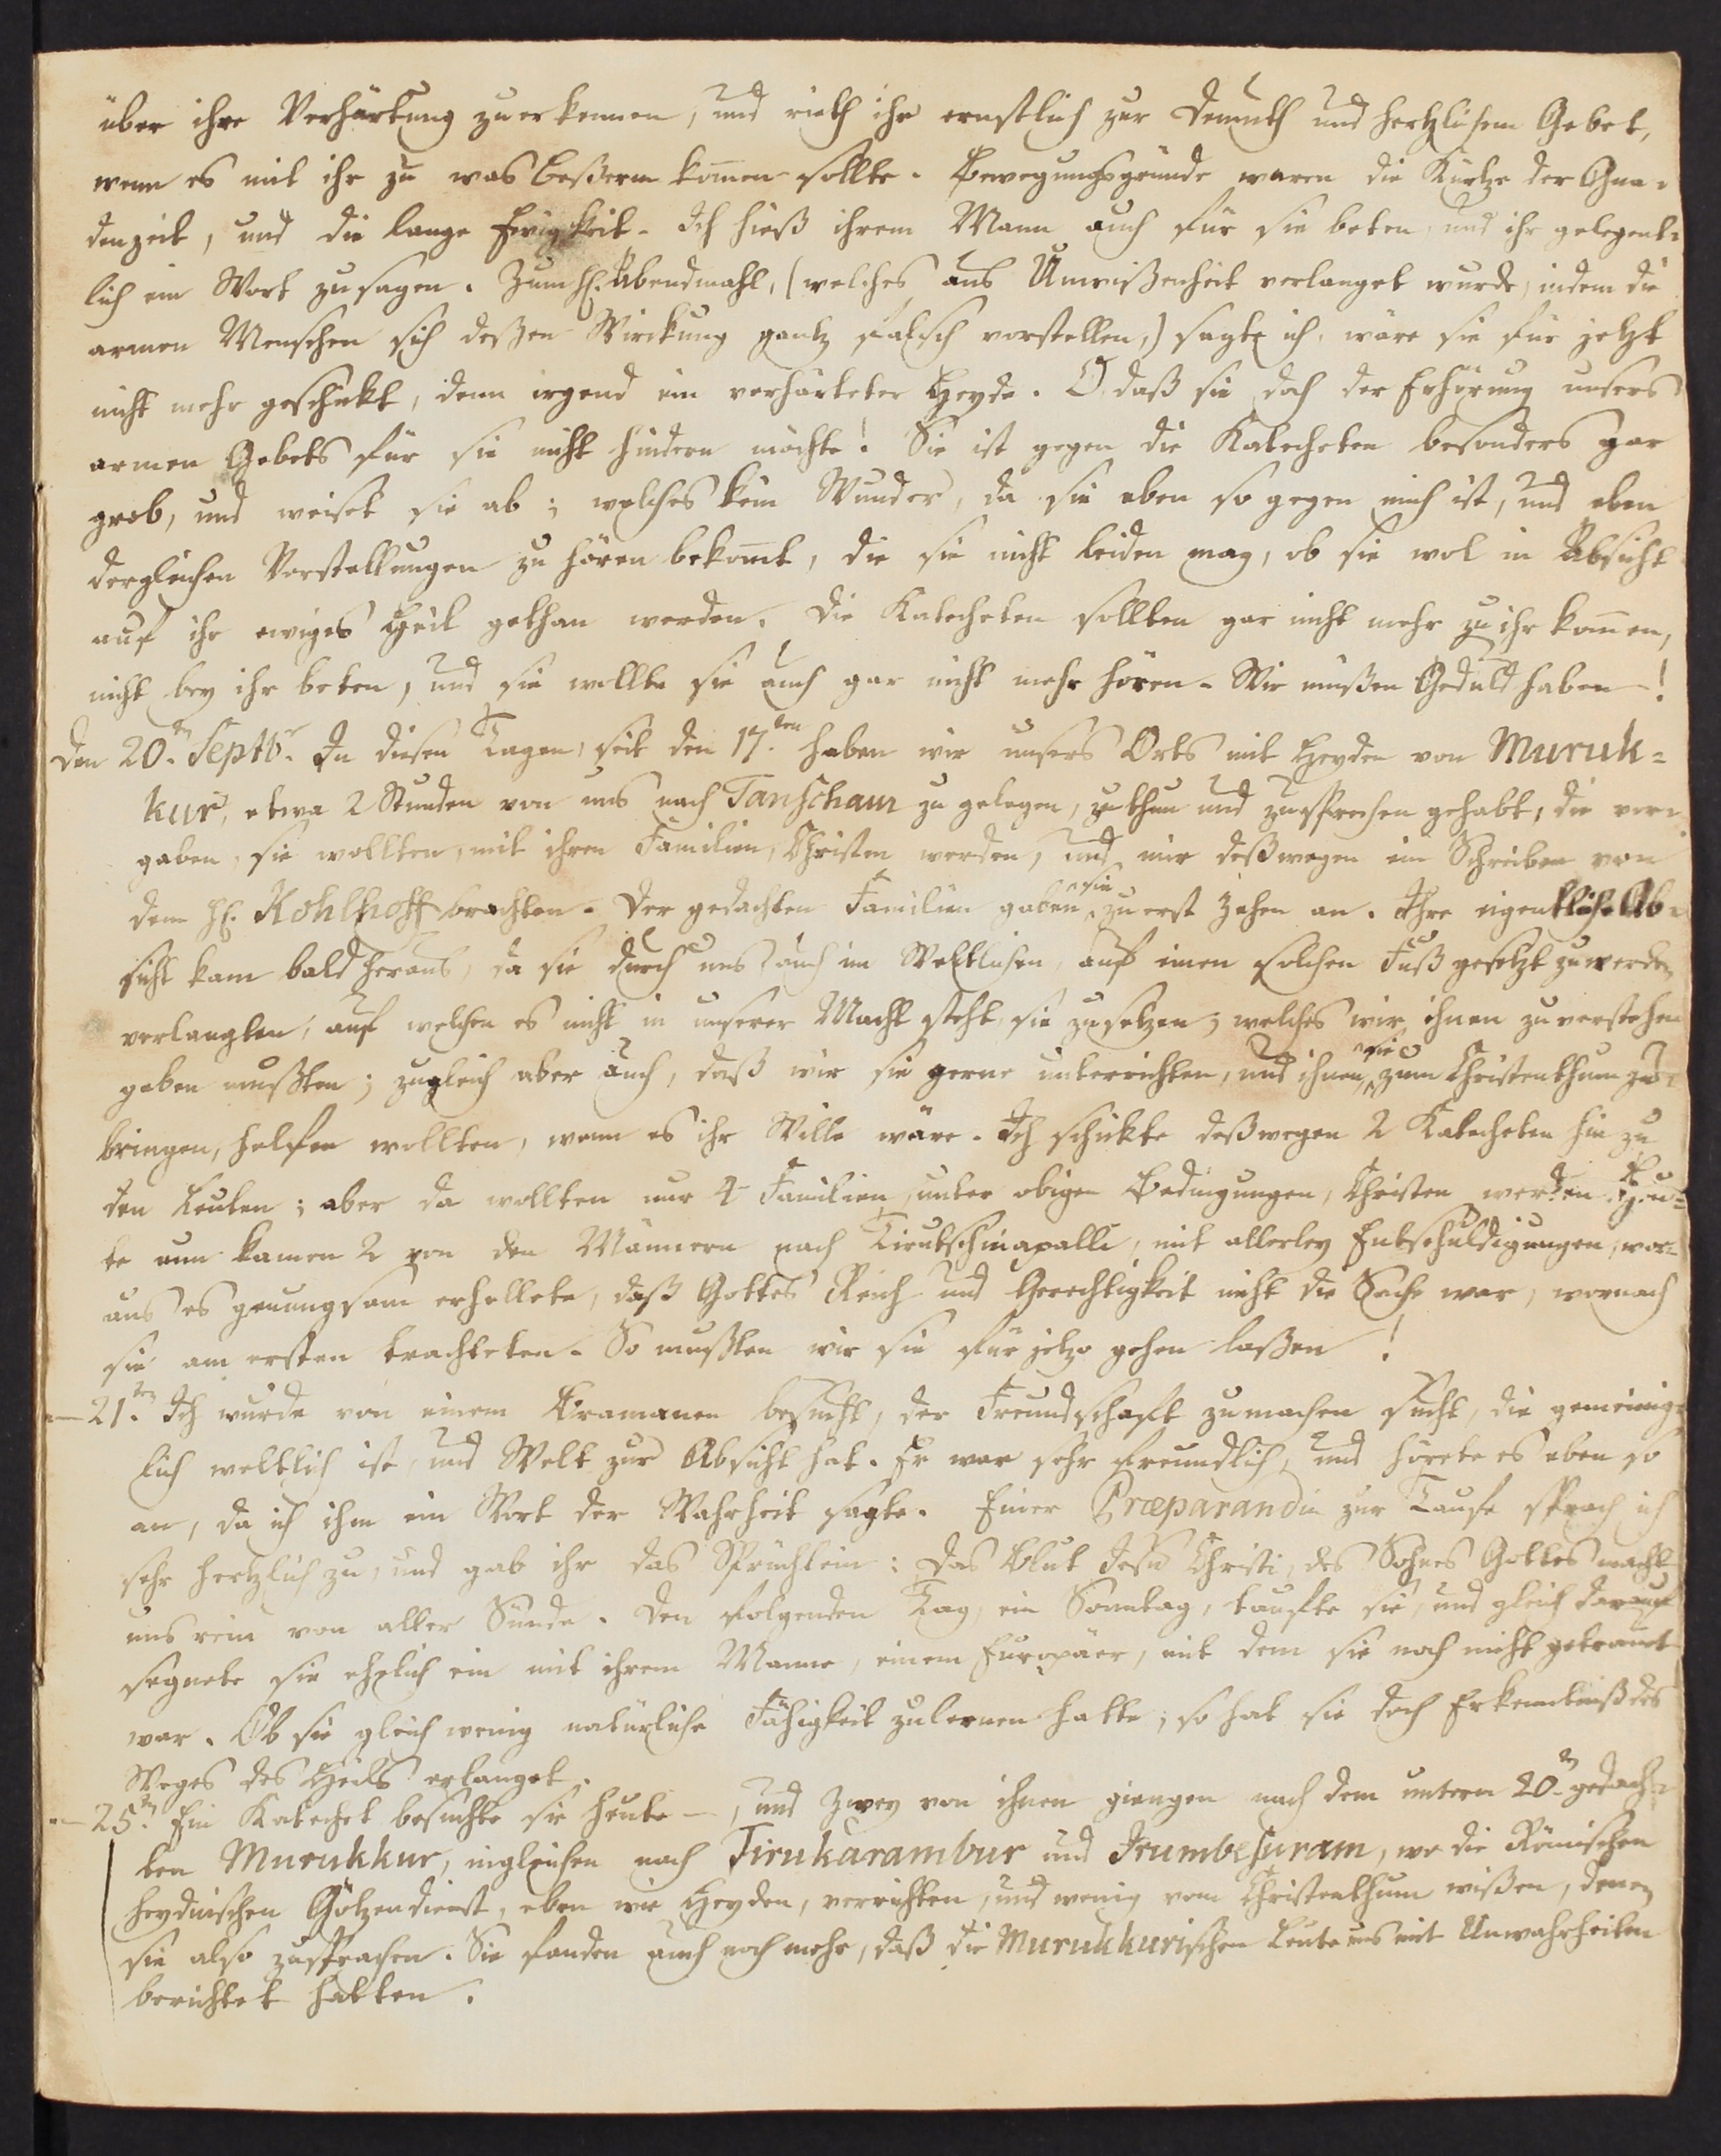 über ihre Verhärtung zu erkennen, und rieth ihr ernstlich zur Demuth und hertzlichem Gebet,
wenn es mit ihr zu was beßerm kom̅en sollte. Bewegungsgründe waren die Kürtze der Gna-
denzeit, und die lange Ewigkeit. Ich hieß ihrem Mann auch für sie beten, und ihr gelegent-
lich ein Wort zu sagen. Zum H. Abendmahl, (welches aus Unwißenheit verlanget wurde, indem die
armen Menschen sich deßen Wirckung gantz falsch vorstellen,) sagte ich, wäre sie für jetzt
nicht mehr geschickt, denn irgend ein verhärteter Heyde. O, daß sie doch der Erhörung unsers
armen Gebets für sie nicht hindern möchte! Sie ist gegen die Katecheten besonders gar
grob, und weiset sie ab; welches kein Wunder, da sie eben so gegen mich ist, und eben
dergleichen Vorstellungen zu hören bekom̅t, die sie nicht leiden mag, ob sie wol in Absicht
auf ihr ewiges Heil gethan werden. Die Katecheten sollten gar nicht mehr zu ihr kom̅en,
nicht bey ihr beten, und sie wollte sie auch gar nicht mehr hören. Wir müßen Geduld haben!
Den 20.ten Septbr. In diesen Tagen, seit den 17.ten haben wir unsers Orts mit Heyden von Muruk-
kur, etwa 2 Stunden von uns nach Tanschaur zu gelegen, zu thun und zu sprechen gehabt, die vor-
gaben, sie wollten, mit ihren Familien, Christen werden, und mir deßwegen ein Schreiben von
dem H. Kohlhoff brachten. Der gedachten Familien gaben sie zu erst zehen an. Ihre eigentliche Ab-
sicht kam bald heraus, da sie durch uns auch im Weltlichen, auf einen solchen Fuß gesetzt zu werden
verlangten, auf welchen es nicht in unserer Macht steht, sie zu setzen; welches wir ihnen zu verstehen
geben mußten; zugleich aber auch, daß wir sie gerne unterrichten, und ihnen, sie zum Christenthum zu
bringen, helfen wollten, wenn es ihr Wille wäre. Ich schickte deßwegen 2 Katecheten hin zu
den Leuten; aber da wollten nur 4 Familien, unter obigen Bedingungen, Christen werden. Heu-
te nun kamen 2 von den Männern nach Tirutschinapalli, mit allerley Entschuldigungen, wor-
aus es genungsam erhellete, daß Gottes Reich und Gerechtigkeit nicht die Sache war, wornach
sie am ersten trachteten. So mußten wir sie für jetzo gehen laßen!
— 21.ten Ich wurde von einem Bramanen besucht, der Freundschaft zu machen sucht, die gemeinig-
lich weltlich ist, und Welt zur Absicht hat. Er war sehr freundlich, und hörete es eben so
an, da ich ihm ein Wort der Wahrheit sagte. Einer Præparandin zur Taufe sprach ich
sehr hertzlich zu, und gab ihr das Sprüchlein: Das Blut Jesu Christi, des Sohnes Gottes macht
uns rein von aller Sünde. Den folgenden Tag, ein Sonntag, taufte sie, und gleich darauf
segnete sie ehelich ein mit ihrem Manne, einem Europäer, mit dem sie noch nicht getrauet
war. Ob sie gleich wenig natürliche Fähigkeit zu lernen hatte; so hat sie doch Erkenntniß des
Weges des Heils erlanget.
— 25.ten Ein Katechet besuchte sie heute —, und zwey von ihnen giengen nach dem untern 20.ten gedach-
ten Murukkur, ingleichen nach Tirukarambur und Irumbesuram, wo die Römischen
heydnischen Götzendienst, eben wie Heyden, verrichten, und wenig vom Christenthum wißen, denen
sie also zusprachen. Sie fanden auch noch mehr, daß die Murukkurischen Leute uns mit Unwahrheiten
berichtet hatten.